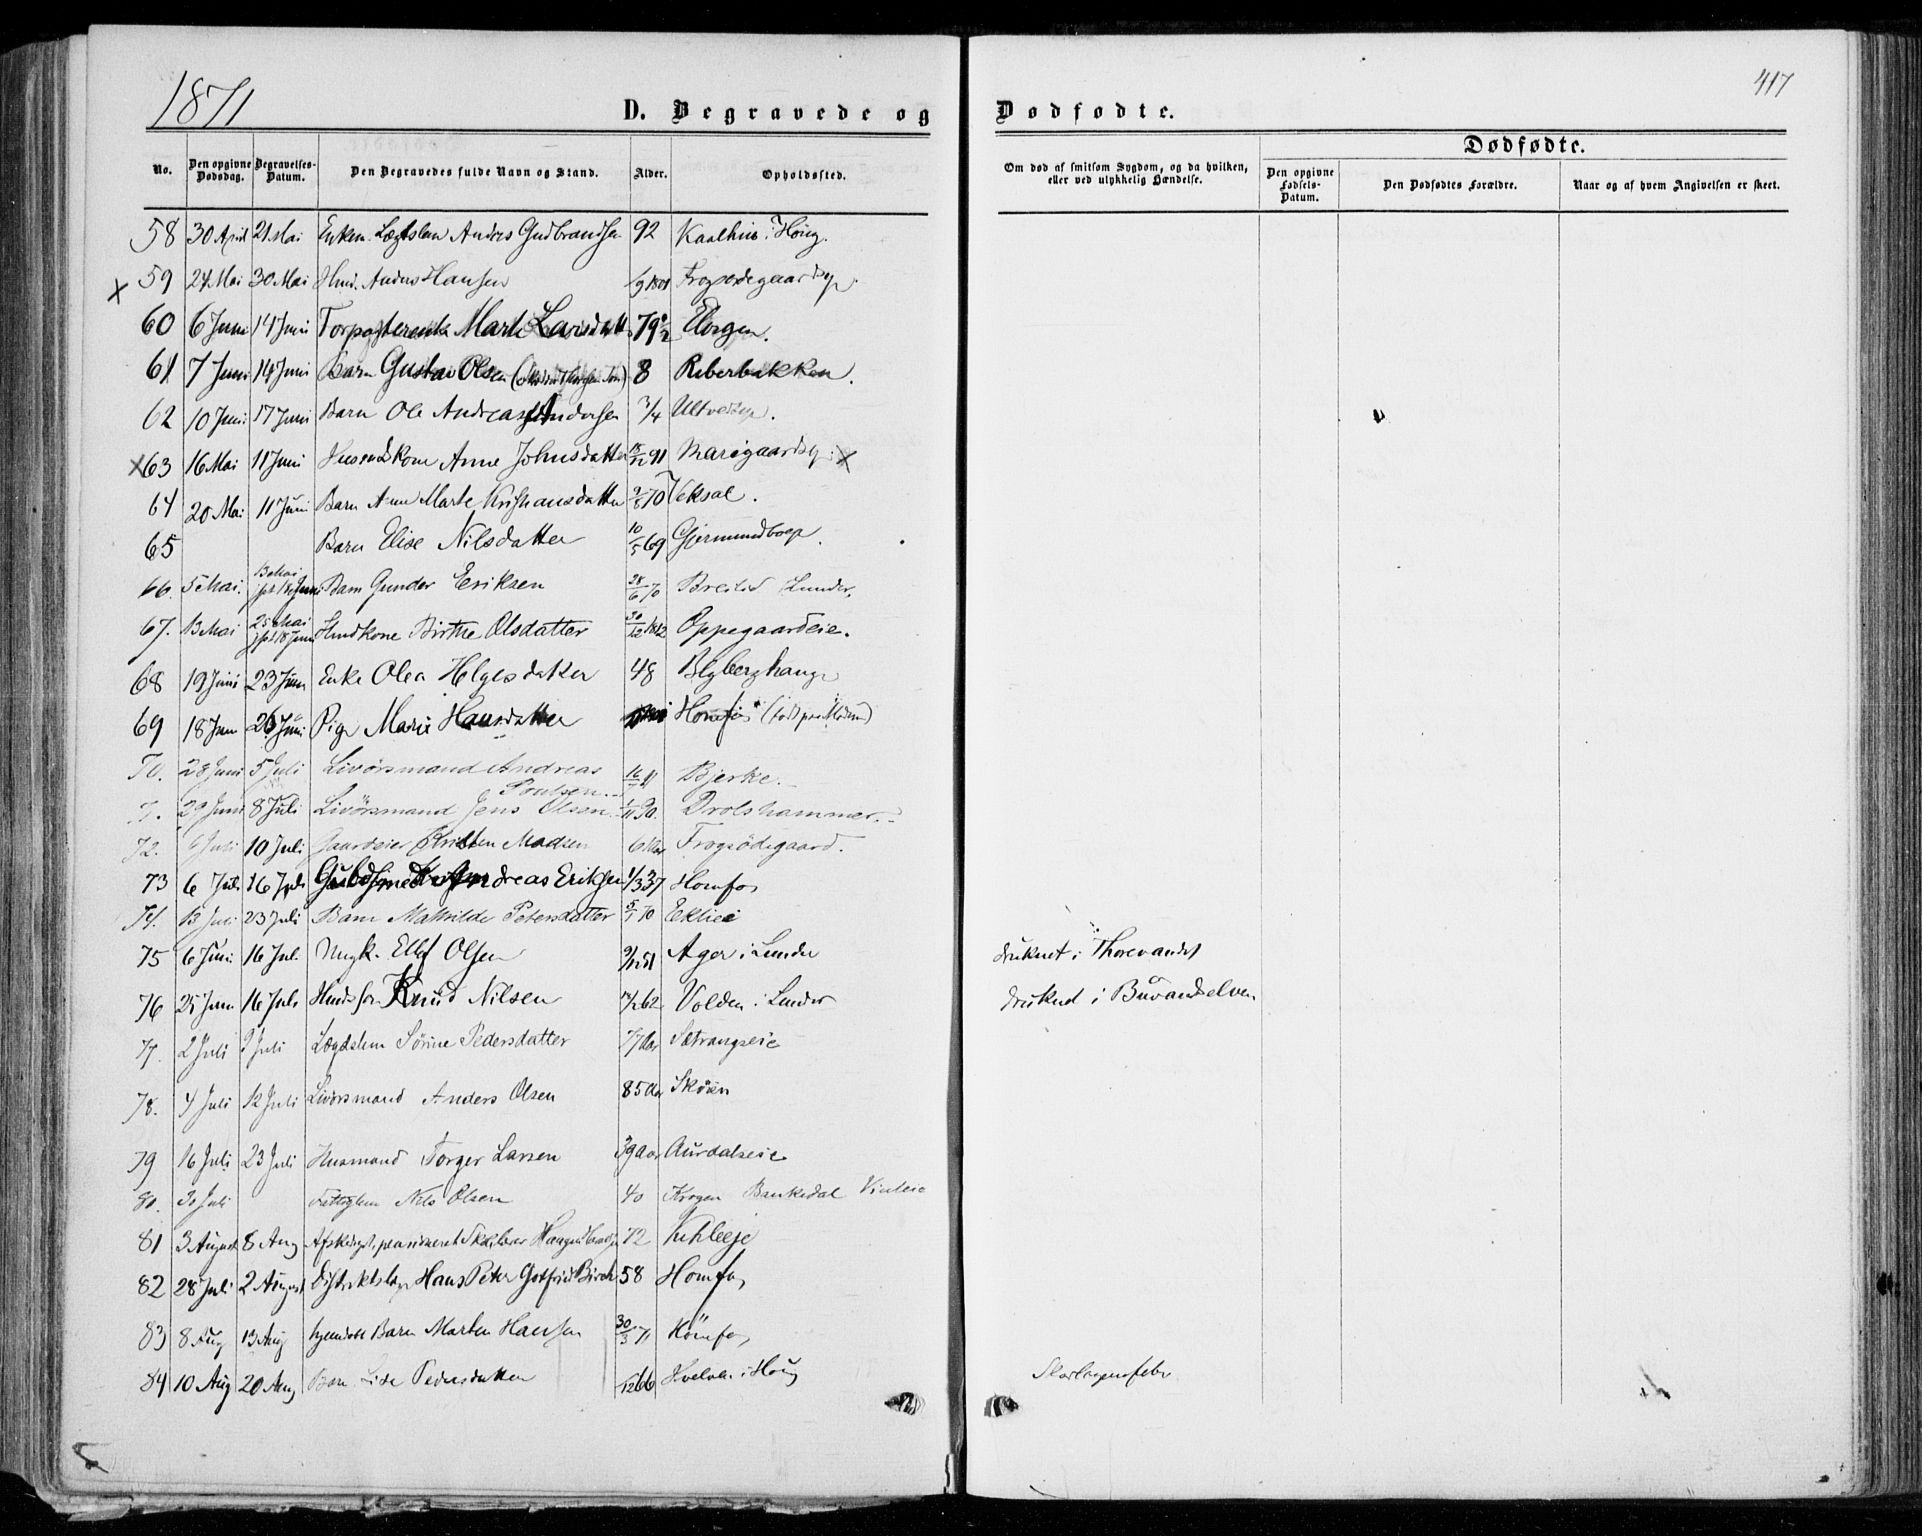 1871
417
D. Begravede og Dødfødte.
Dødfødte.
No. Den opgivne Dødsdag. Begravelses-Datum. Den Begravedes fulde Navn og Stand. Alder. Opholdssted. Om død af smitsom Sygdom, og da hvilken, eller ved ulykkelig Hændelse. Den opgivne Fødsels-Datum. Den Dødfødtes Forældre. Naar og af hvem Angivelsen er skeet.
58 30 April 21 Mai Enkem. Lægdslem Anders Gudbrandsen 92 Kaalhus i Houg.
x 59 24 Mai 30 Mai Hmd. Anders Hansen Frogødegaards
60 6 Juni 14 Juni Marte Larisdatter 79 1/2 Elvegen.
61 7 Juni 14 Juni Barn Gustav Olsen 8 Reberbakken.
62 10 Juni 17 Juni Barn Ole Andreas Andersen 3/4
x 63 16 Mai 11 Juni Husmdskone Anne Johnsdatter x
64 20 Mai 11 Juni Barn Anne Marte Kristiansdatter 70 Veksal.
65 Barn Elise Nilsdatter 10/5 69
66. 5 Mai. 13 Mai jfst 18 Juni Barn Gunder Eriksen 28/6 70 Breilid Lunder.
67. 13 Mai 25 Mai jfst 18 Juni Hmdkone Birthe Olsdatter 30/12 1812 Oppegaardeie.
68 19 Juni 23 Juni Enke Olea Helgesdatter 48 Blybergshaug
69 18 Juni 26 Juni Pige Marie Hansdatter Honefos (født paa Modum)
70. 28 Juni 5 Juli Livørsmand Andreas Poulsen. 16 Bjerke.
29 Juni 8 Juli Livørsmand Jens Olsen 90. Drolshammer.
72. 6 Juli 10 Juli Gaardeier Kristen Madsen Frogsødegaard.
73 6 Juli 16 Juli Guldsmed Andreas Eriksen 37 Honefos
74. 13 Juli 23 Juli Barn Mathilde Petersdatter 5/1 70 Eklieie
75 6 Juni 16 Juli Ungk. Ellef Olsen 51 Ager i Lunder druknet i Thorevandet
76 25 Juni 16 Juli Knud Nilsen 62 Volden i Lunder druknet i Buvandselven
77. 2 Juli 9 Juli Lægdslem Sørine Pedersdatter 77 Aar Setrangseie
78. 4 Juli 12 Juli Livørsmand Anders Olsen 85 Aar Skøien
79 16 Juli 23 Juli Husmand Torger Larsen 39 Aar Aurdalseie
80. 30 Juli Fattiglem Nils Olsen 40 Krogen Bankedal
81 3 August 8 Aug Afskediget, pensioneret Skolelærer Haagen 72
82 28 Juli 2 August Distriktslæge Hans Peter Gotfried Birch 58 Honefos
83 8 Aug 13 Aug hjemdøbt Barn Marten Hansen 30/3 71 Hönefos
84 10 Aug 20 Aug Barn Lise Pedersdatter 12 66 Hvelven i Houg Skarlagensfeber